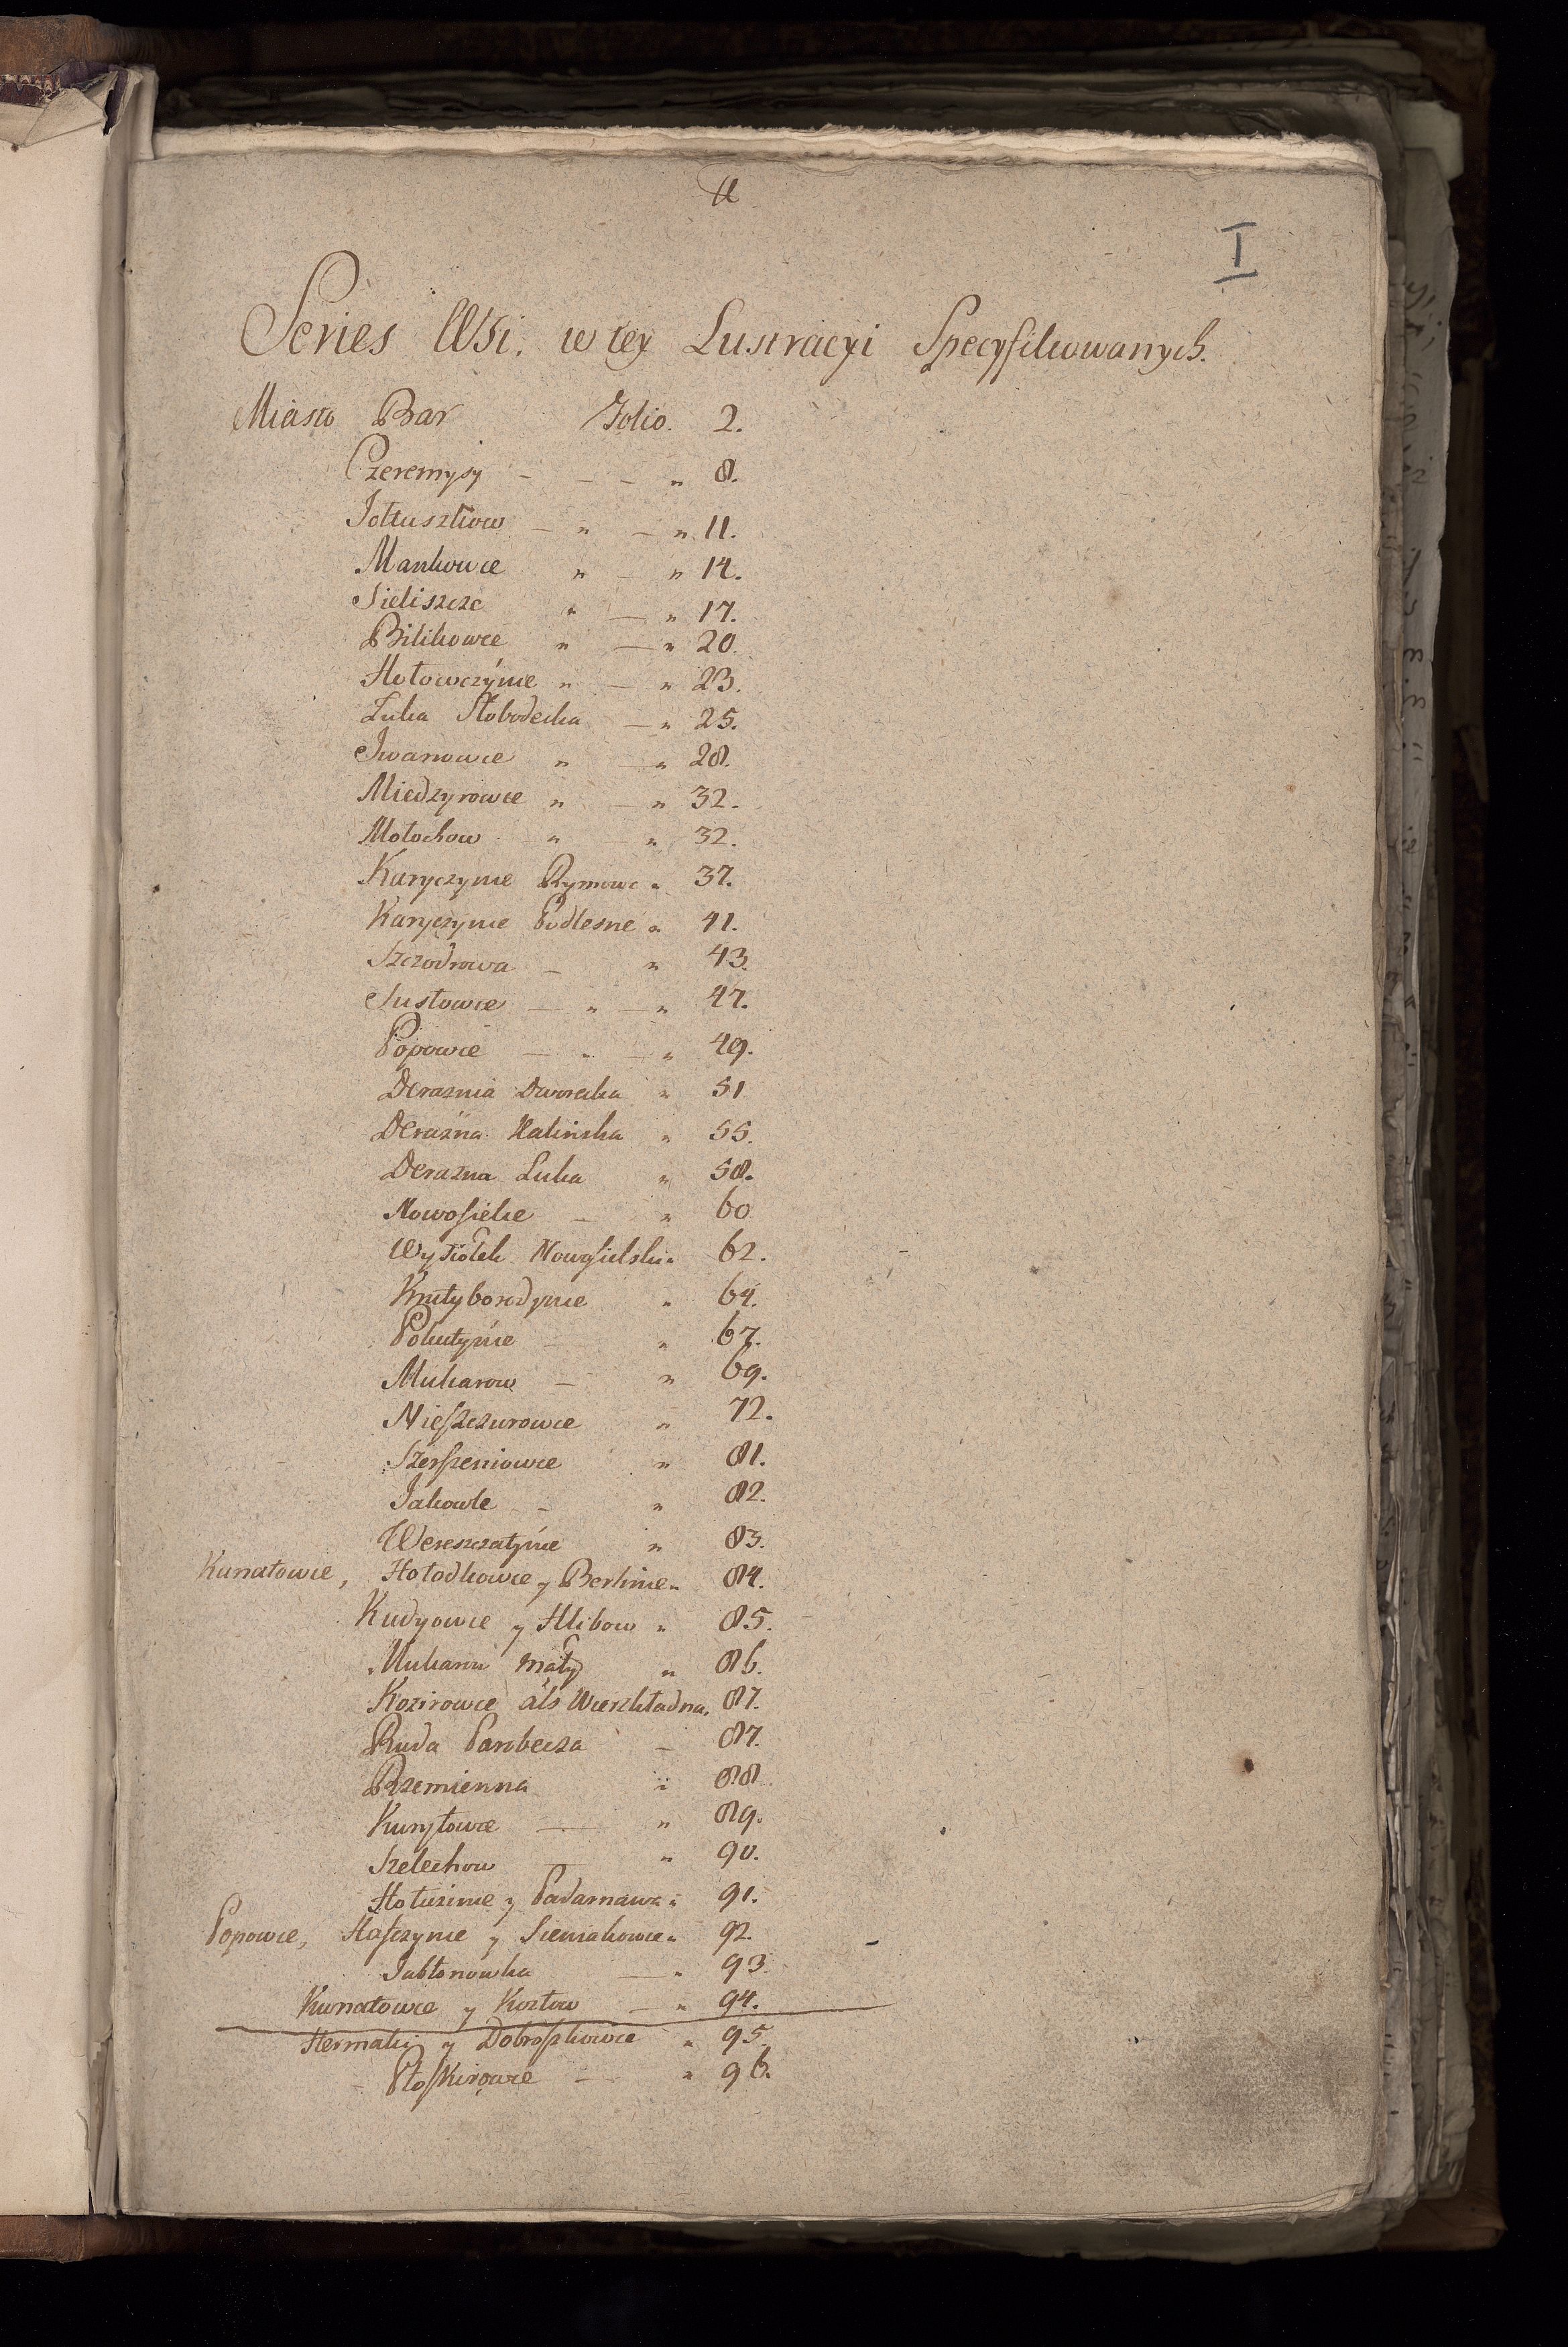 I
Series Wsi. w tey Lustracyi Specyfikowanych.
Miasto Bar Folio. 2.
Czeremysy - - - " 8.
Jołtuszkow - " - " 11.
Mankowce " - " 14.
Sieliszcze " - " 17.
Bilikowce " - " 20.
Hołowczynie " - " 23.
Łuka Słobodecka - " 25.
Iwanowce " - " 28.
Miedzyrowce " - " 32.
Mołochow " - " 32.
Karyczynie Rymowe " 37.
Karyczynie Podlesne " 41.
Szczodrowa - " 43.
Susłowce - " - " 47.
Popowce - " - " 49.
Deraznia Dworecka " 51
Deraźna Halińska " 55.
Derazna Łuka " 58.
Nowosielce - " 60
Wysiołek Nowosielski " 62.
Krutyborodynie " 64.
Pokutynie - " 67.
Mukarow - " 69.
Nieszczurowce " 72.
Szerszeniowce " 81.
Jakowle - " 82.
Wereszczatynie " 83.
Kunatowce, Hołodkowce y Berlince " 84.
Kudyowce y Hlibow " 85.
Mukarow Mały " 86.
Kozirowce als Wierzkładna. 87.
Ruda Parobecza - 87.
Rzemienna " 88
Kuryłowce - " 89.
Szelechow - " 90.
Hołuzince y " 91.
Popowce, Hasczynie y Sieniakowce " 92.
Jabłonowka - " 93.
Kunatowce y Kozłow - " 94.
Hermaki y Dobroszkowce " 95.
- Płoskirowce - " 96.